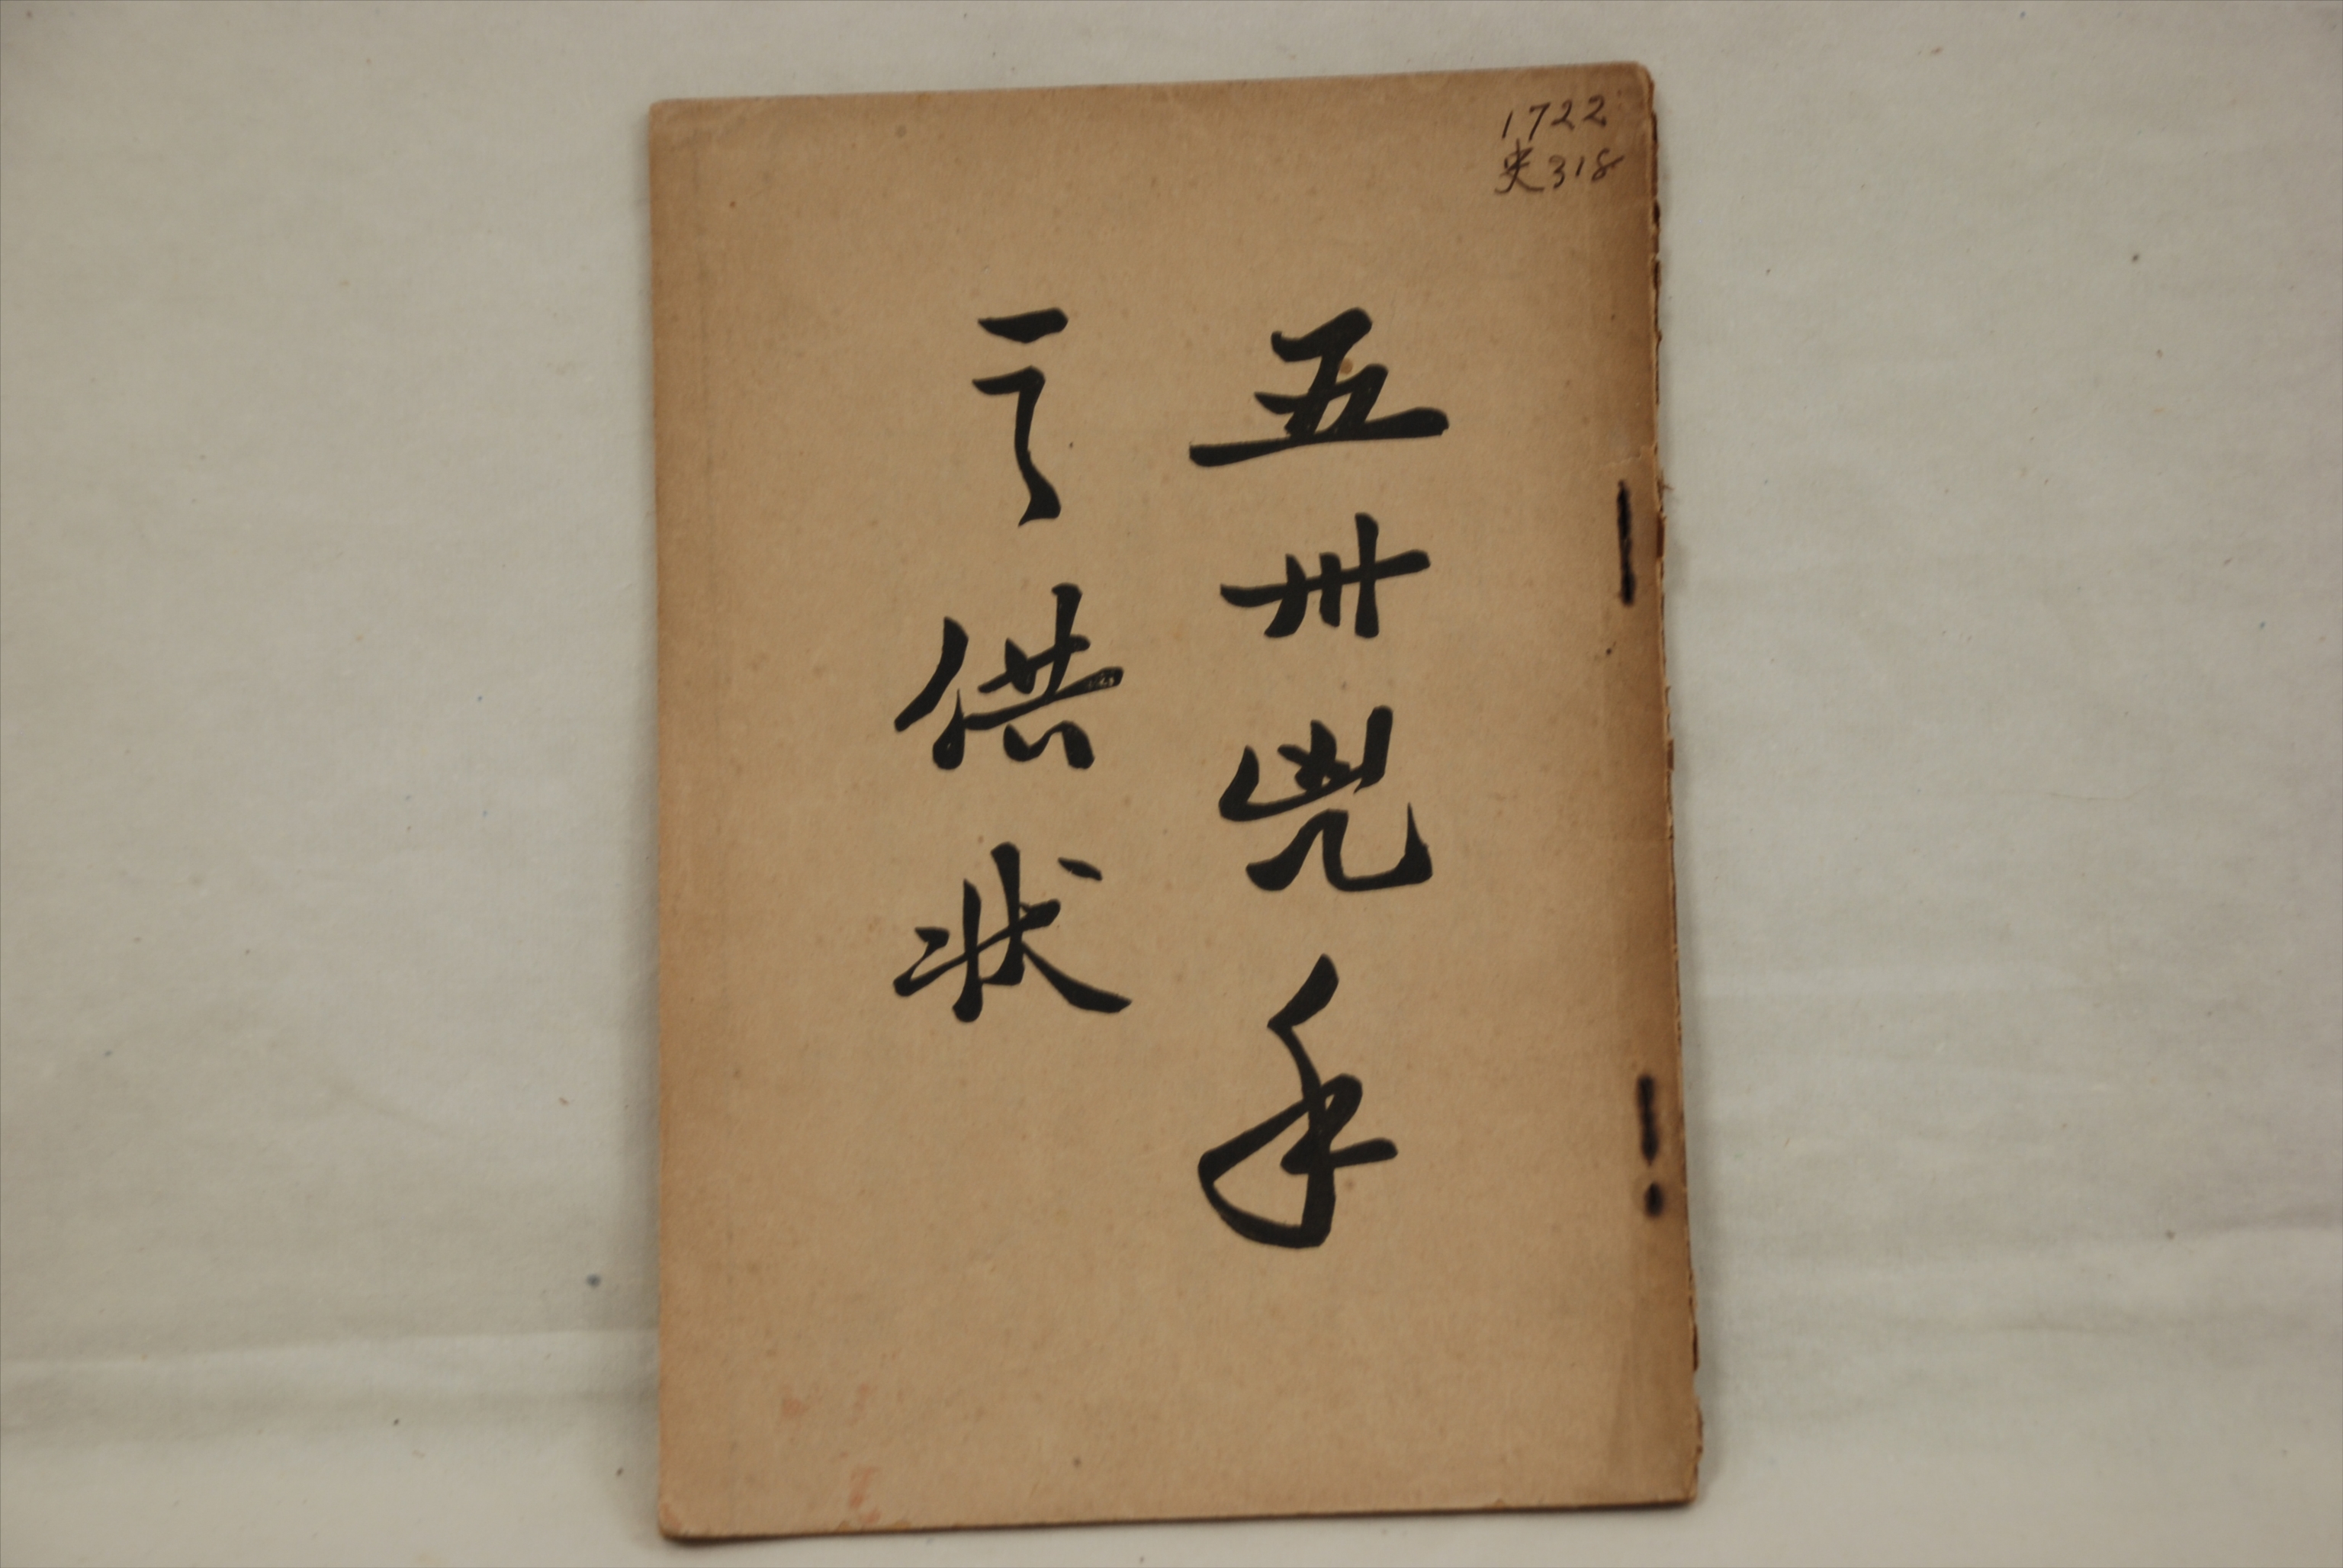 1722
史318
五卅兇手
之供狀